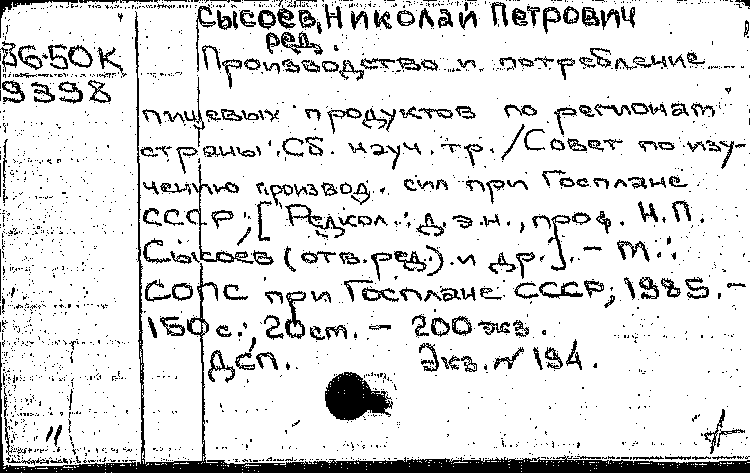 Сысоев, Николай Петрович
ред.
36-50К
9398
Производство и потребление
пищевых продуктов по регионам
страны: Сб. науч. тр. / Совет по изу-
чению производ. сил при Госплане
СССР; [Редкол.: д.э.н., проф. Н.П.
Сысоев (отв. ред.) и др.]. – М.:
СОПС при Госплане СССР, 1985. –
150 с.; 20 см. – 200 экз.
Дсп. Экз. N 194.